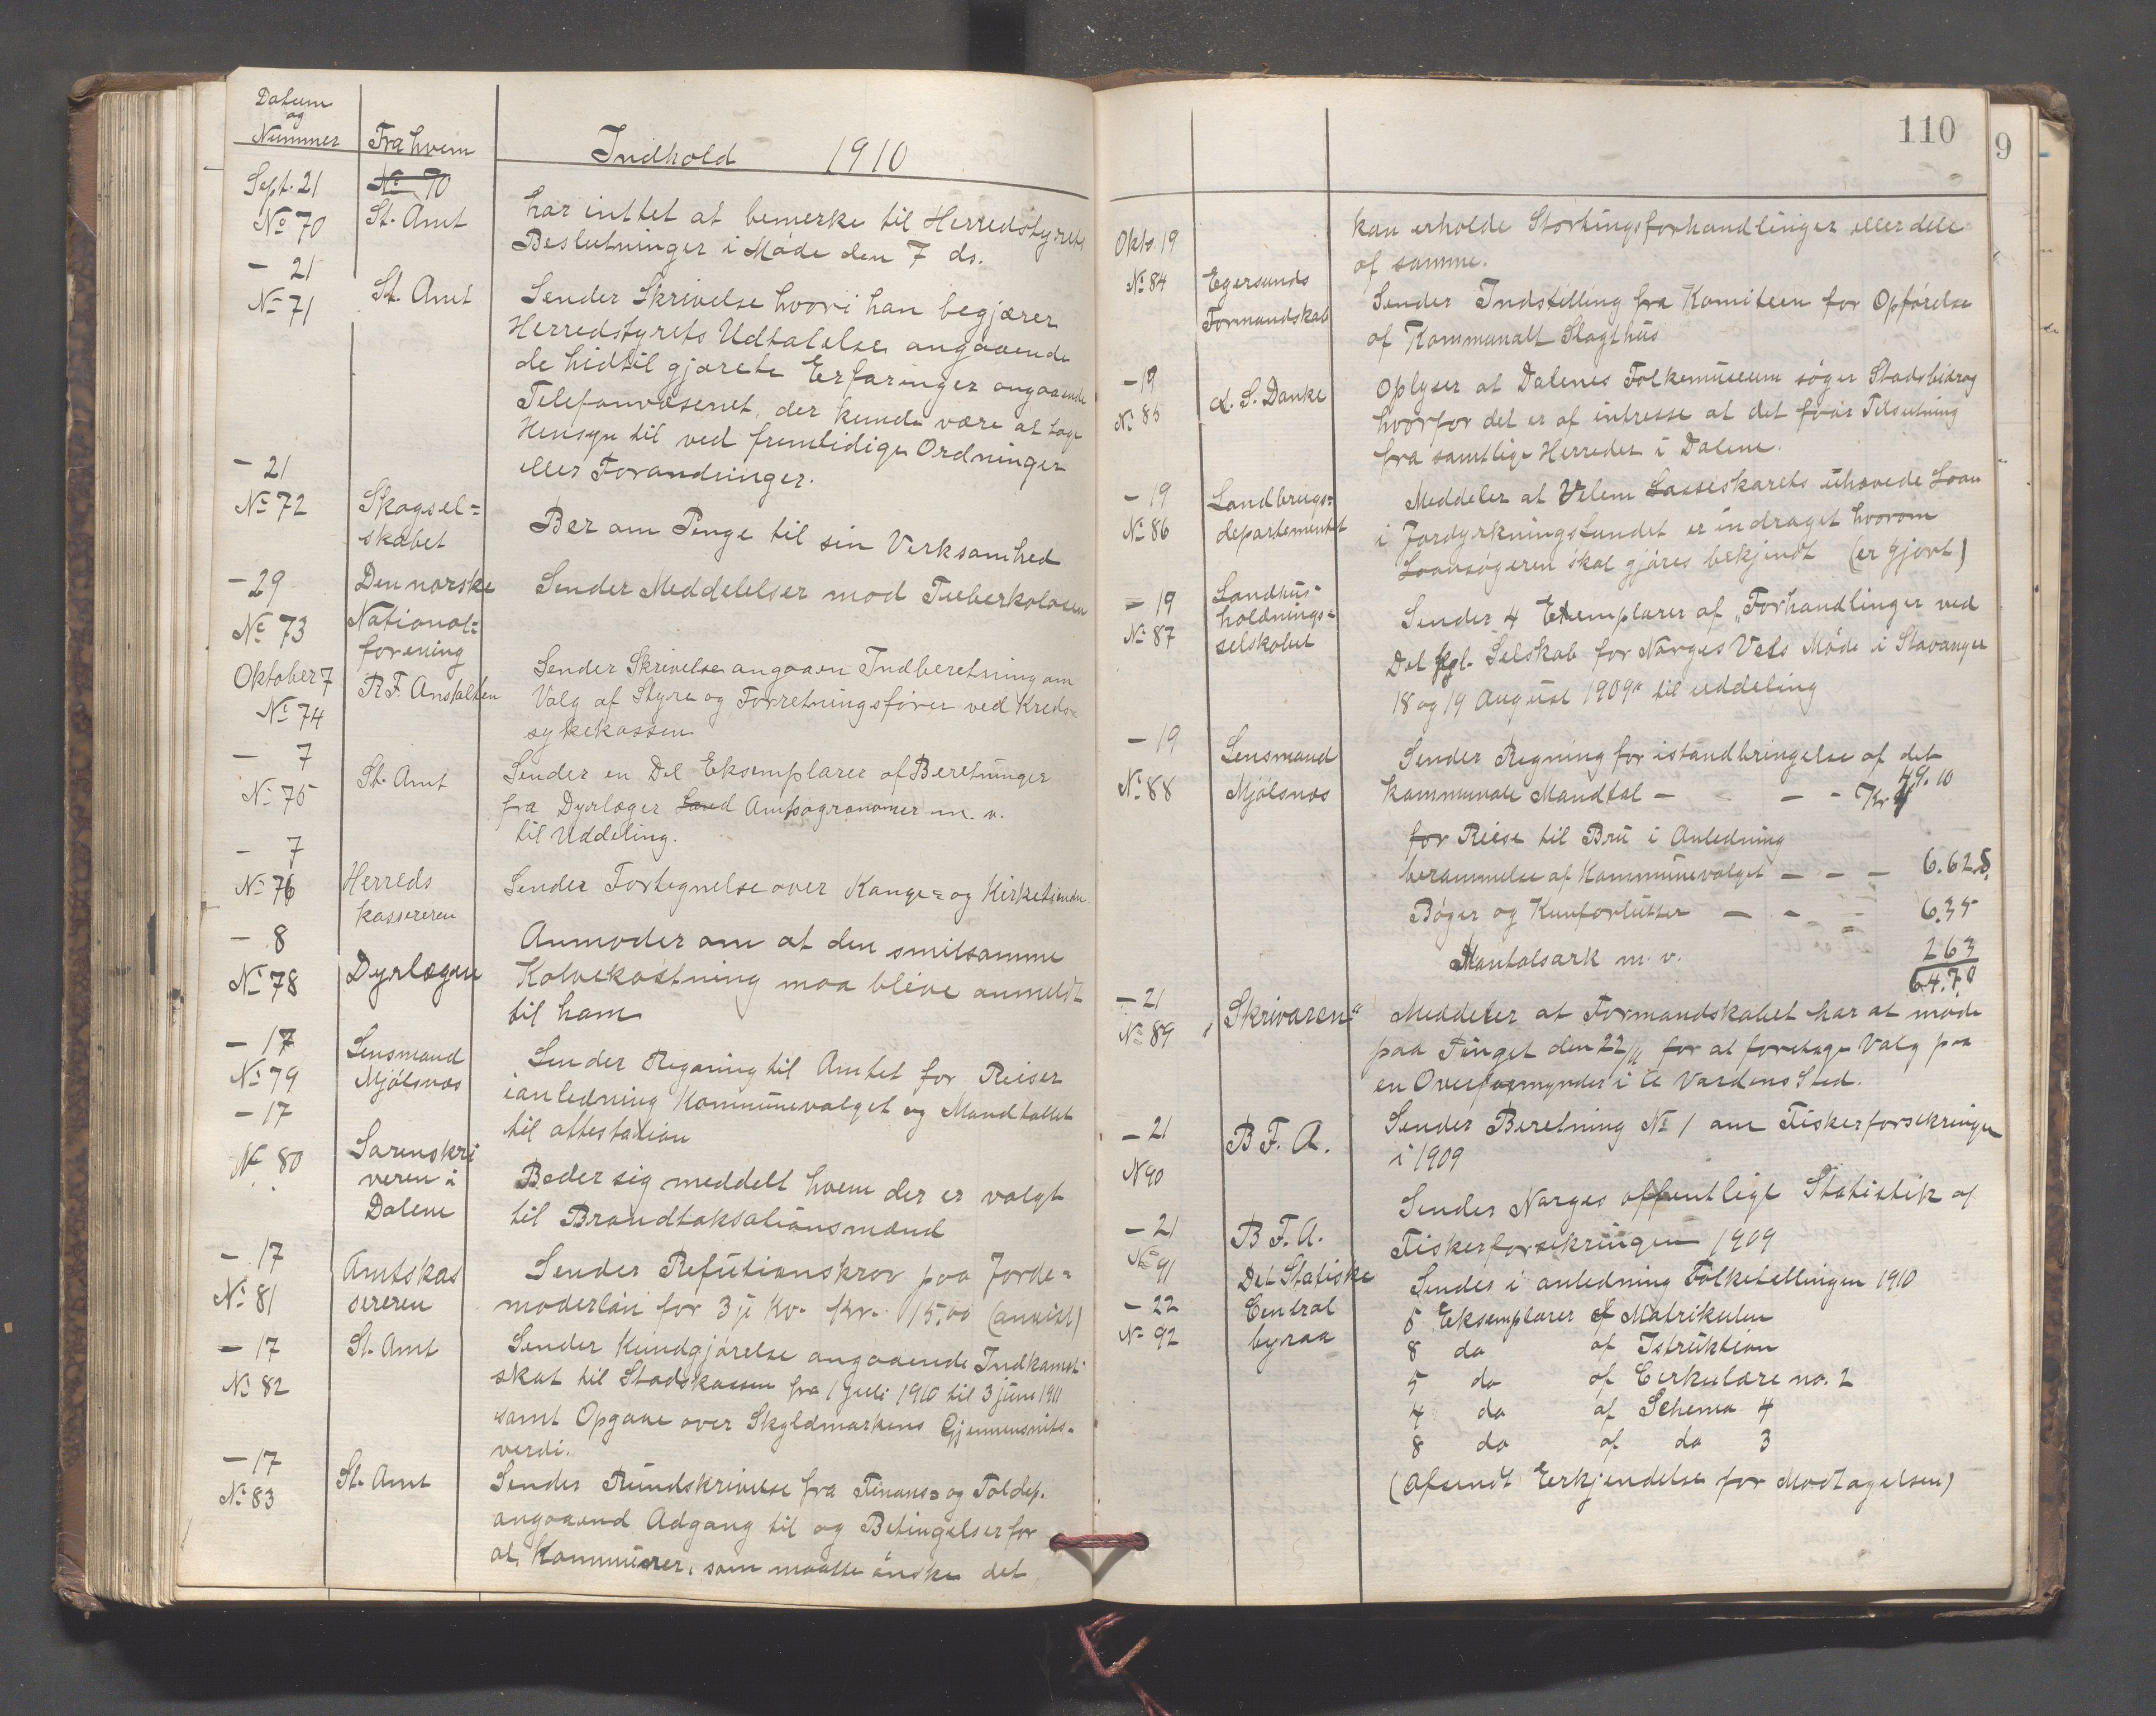 Datum
og
Nummer
Fra hvem
Indhold 1910
Sept. 21
No 70
No 70
St. Amt
har inttet at bemerke til Herredstyrets
Beslutninger i Møde den 7 ds.
- 21
No 71
St. Amt
Sender Skrivelse hvori han begjærer
Herredstyrets Udtalelse angaaende
de hidtil gjorete Erfaringer angaaende
Telefonvæsenet, der kunde være at tage
Hensyn til ved fremtidige Ordninger
eller Forandringer.
- 21
No 72
Skogsel=
skabet
Ber om Penge til sin Verksomhed
- 29
No 73
Den norske
National=
forening
Sender Meddelelser mod Tuberkolosen
Oktober 7
No 74
R.F. Anstalten
Sender Skrivelse angaaen Indberetning om
Valg af Styre og Forretningsfører ved Kreds=
sykekassen
- 7
No 75
St. Amt
Sender en Del Eksemplarer af Beretninger
fra Dyrlæger Land Amtsagronomer m. v.
til Uddeling.
- 7
No 76
Herreds
kassereren
Sender Fortegnelse over Konge= og Kirketiende
- 8
No 78
Dyrlægen
Anmoder om at den smitsamme
Kalvekastning maa blive anmeldt
til ham
- 17
No 79
Lensmand
Mjølsnes
Sender Regning til Amtet for Reiser
ianledning Kommunevalget og Mandtallet
til attestation
- 17
No 80
Sorenskri
veren i
Dalene
Beder sig meddelt hvem der er valgt
til Brandtaksationsmænd
- 17
No 81
Amtskas
sereren
Sender Refutionskrav paa Jorde=
moderløn for 3je Kv. Kr. 15,00 (anvist)
- 17
No 82
St. Amt
Sender Kundgjørelse angaaende Indkomst-
skat til Stadskassen fra 1 Juli 1910 til 3 juni 1911
samt Opgave over Skyldmarkens Gjennemsnits-
verdi.
- 17
No 83
St. Amt
Sender Rundskrivelse fra Finans= og Toldep.
angaaend Adgang til og Betingelser for
at Kommuner, som maatte ønske det
110
9
kan erholde Stortingsforhandlinger eller dele
af samme.
Okto 19
No 84
Egersunds
Formandskab
Sender Indstilling fra Komiteen for Opførelse
af Kommunalt Slagthus
- 19
No 85
A. S. Danke
Oplyser at Dalenes Folkemuseum søger Stadsbidrag
hvorfor det er af intresse at det faar Tilslutning
fra samtlige Herreder i Dalene.
- 19
No 86
Landbrugs=
departementet
Meddeler at Velem Lasseskarets uhævede Laan
i Jordyrkningsfundet er indraget hvorom
Loansøgeren skal gjøres bekjendt (er gjort)
- 19
No 87
Landhus-
holdnings=
selskabet
Sender 4 Exemplarer af „Forhandlinger ved
Det kgl. Selskab for Norges Vels Møde i Stavanger
18 og 19 August 1909" til uddeling
- 19
No 88
Lensmand
Mjølsnes
Sender Regning for istandbringelse af det
kommunale Mandtal - - - Kr 49.10
for Reise til Bru i Anledning
berammelse af Kommunevalget - - - 6.62
Bøger og Kunforlutter - - - 6.35
Mantalsark m. v. 263
64.70
- 21
No 89
„Skrivaren"
Meddeler at Formandskabet har at møde
paa Tinget den 22/11 for at foretage Valg paa
en Overformynder i Vardens Sted.
- 21
N 90
B F. A.
Sender Beretning No 1 om Fiskerforsikringen
i 1909
- 21
No 91
B F. A.
Sender Norges offentlige Statistik af
Fiskerforsikringen 1909
- 22
No 92
Det Statiske
Central
byraa
Sender i anledning Folketellingen 1910
5 Eksemplarer af Matrikulen
8 do af Istruktion
5 do af Cirkulære no. 2
4 do af Schema 4
8 do af do 3
(Afsendt Erkjendelse for Modtagelsen)